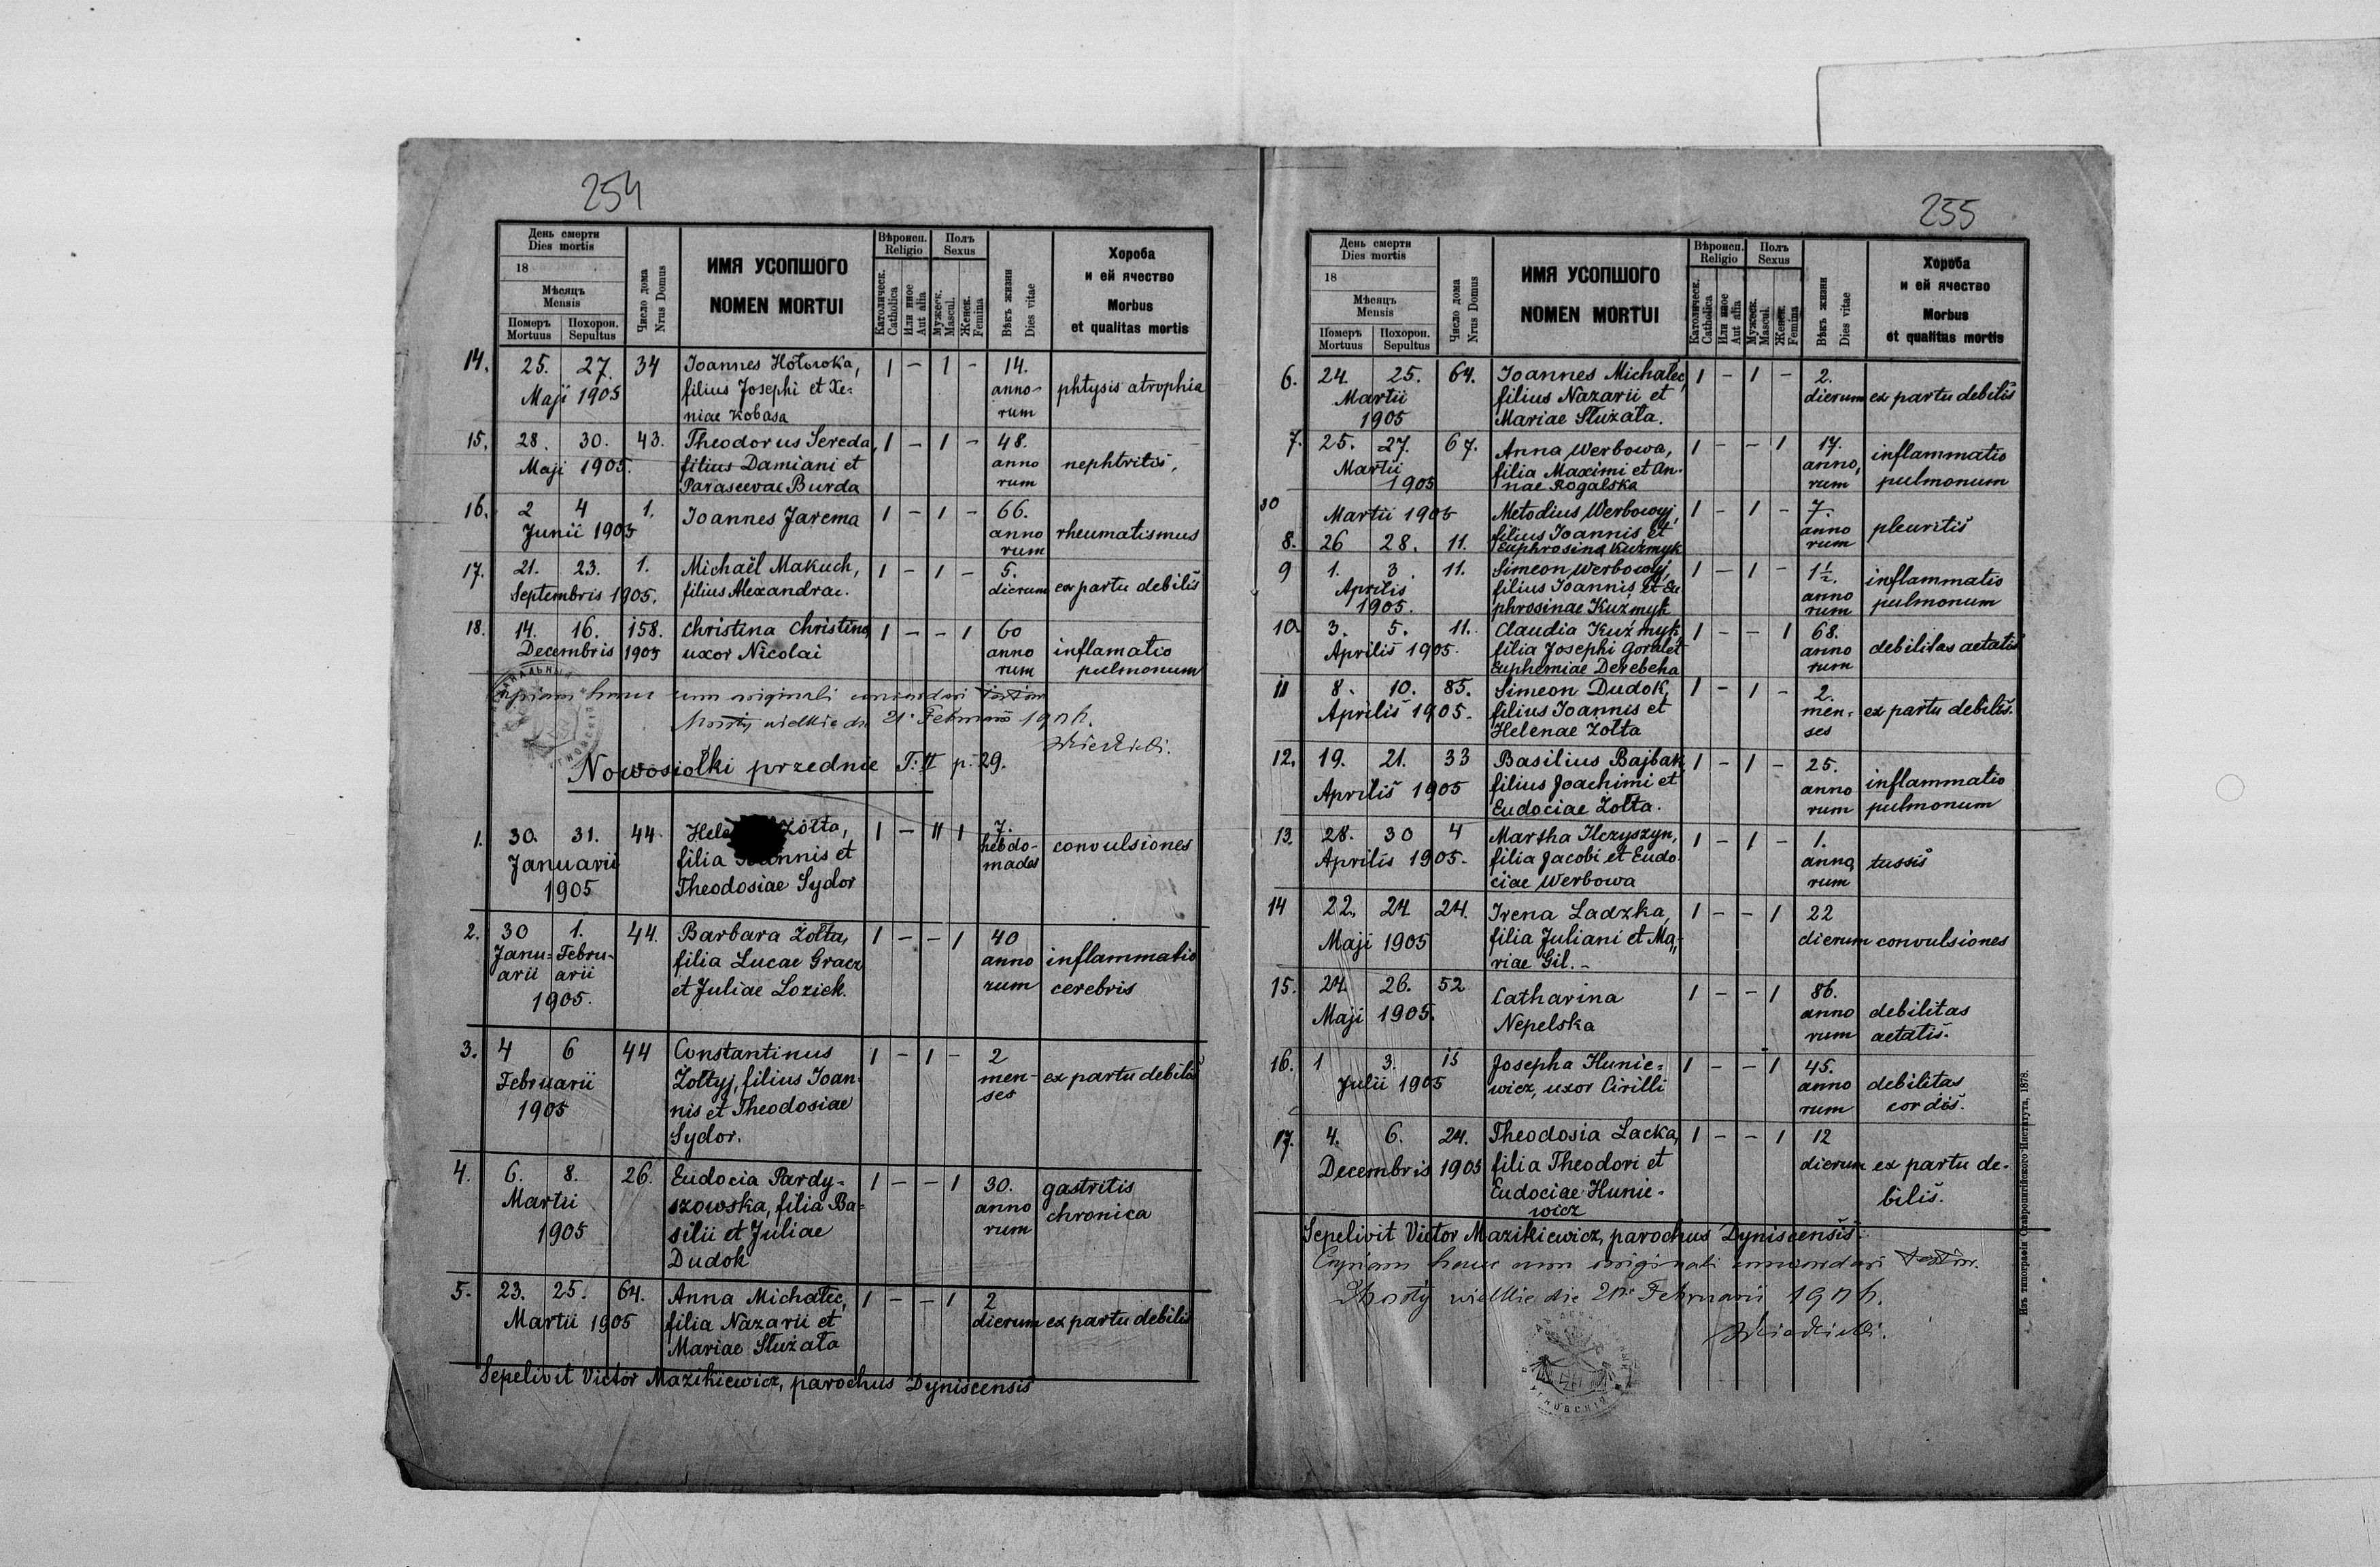 254
День смерти
Dies mortis
18
Мѣсяцъ
Mensis
Померъ
Mortuus
Похорон.
Sepultus
Число дома
Nrus Domus
ИМЯ УСОПШОГО
NOMEN MORTUI
Вѣроисп.
Religio
Католическ.
Catholica
Или иное
Aut alia
Полъ
Sexus
Мужеск.
Mascul.
Женск.
Femina
Вѣкъ жизни
Dies vitae
Хороба
и ей ячество
Morbus
et qualitas mortis
14. 25. 27. 34 Joannes Hotwoka, 1 – 1 – 14.
Maji 1905 filius Josephi et Xe- anno- phtysis atrophia
niae Kobasa rum
15. 28. 30. 43. Theodorus Sereda, 1 – 1 – 48.
Maji 1905. filius Damiani et anno nephtritis,
Parascevae Burda rum
16. 2 4 1. Joannes Jarema 1 – 1 – 66.
Junii 1905 anno rheumatismus
rum
17. 21. 23. 1. Michaël Makuch, 1 – 1 – 5.
Septembris 1905. filius Alexandrae. dierum ex partu debilis
18. 14. 16. 158. Christina Christina 1 – – 1 60
Decembris 1905 uxor Nicolai anno inflamatio
rum pulmonum
Copiam hanc cum originali concordari testor
wielkie die 21. Februarii 190
Nowosiołki przednie T: II p. 29.
1. 30. 31. 44. Hele Zołta, 1 – 11 1 7.
Januarii filia Joannis et hebdo- convulsiones
1905 Theodosiae Sydor mades
2. 30 1. 44. Barbara Zołta, 1 – – 1 40
Janu- Febru- filia Lucae Gracz anno inflammatio
arii arii et Juliae Lozick. rum cerebris
1905.
3. 4 6 44 Constantinus 1 – 1 – 2
Februarii Zołtyj, filius Joan- men- ex partu debilis
1905 nis et Theodosiae ses
Sydor.
4. 6. 8. 26. Eudocia Pardy- 1 – – 1 30. gastritis
Martii szowska, filia Ba- anno chronica
1905 silii et Juliae rum
Dudok
5. 23. 25. 64. Anna Michalec, 1 – – 1 2
Martii 1905 filia Nazarii et dierum ex partu debilis
Mariae Służała
Sepelivit Victor Mazikiewicz, parochus Dyniscensis
255
День смерти
Dies mortis
18
Мѣсяцъ
Mensis
Померъ
Mortuus
Похорон.
Sepultus
Число дома
Nrus Domus
ИМЯ УСОПШОГО
NOMEN MORTUI
Вѣроисп.
Religio
Католическ.
Catholica
Или иное
Aut alia
Полъ
Sexus
Мужеск.
Mascul.
Женск.
Femina
Вѣкъ жизни
Dies vitae
Хороба
и ей ячество
Morbus
et qualitas mortis
6. 24. 25. 64. Joannes Michalec, 1 – 1 – 2.
Martii filius Nazarii et dierum ex partu debilis
1905 Mariae Służała.
7. 25. 27. 67. Anna Werbowa, 1 – – 1 17. inflammatio
Martii filia Maximi et An- anno, pulmonum
1905 nae Rogalska rum
30 Martii 1905 Metodius Werbowyj, 1 – 1 – 7.
filius Joannis et anno pleuritis
8. 26 28. 11. Euphrosina Kuźmyk rum
9 1. 3. 11. Simeon Werbowyj, 1 – 1 – 1½. inflammatio
Aprilis filius Joannis et Eu anno pulmonum
1905. phrosinae Kuźmyk rum
10. 3. 5. 11. Claudia Kuźmyk, 1 – – 1 68.
Aprilis 1905. filia Josephi Goral et anno debilitas aetatis
Euphemiae Derebeha rum
11 8. 10. 85. Simeon Dudok, 1 – 1 – 2.
Aprilis 1905. filius Joannis et men- ex partu debilis.
Helenae Zołta ses
12. 19. 21. 33 Basilius Bajbak 1 – 1 – 25.
Aprilis 1905 filius Joachimi et anno inflammatio
Eudociae Zołta. rum pulmonum
13. 28. 30 4 Martha Ilczyszyn, 1 – 1 – 1.
Aprilis 1905. filia Jacobi et Eudo- anno, tussis
ciae Werbowa rum
14 22. 24. 24. Irena Ladzka, 1 – – 1 22
Maji 1905 filia Juliani et Ma- dierum convulsiones
riae Gil. –
15. 24. 26. 52 Catharina 1 – – 1 86.
Maji 1905. Nepelska anno debilitas
rum aetatis.
16. 1 3. 15 Josepha Hunie- 1 – – 1 45.
Julii 1905 wicz, uxor Cirilli anno debilitas
rum cordis.
17. 4. 6. 24. Theodosia Lacka, 1 – – 1 12
Decembris 1905 filia Theodori et dierum ex partu de-
Eudociae Hunie- bilis.
wicz
Sepelivit Victor Mazikiewicz, parochus Dyniscensis.
Copiam hanc cum originali concordari testor.
wielkie die 21. Februarii 190
Изъ типографіи Ставропигійского Института, 1878.